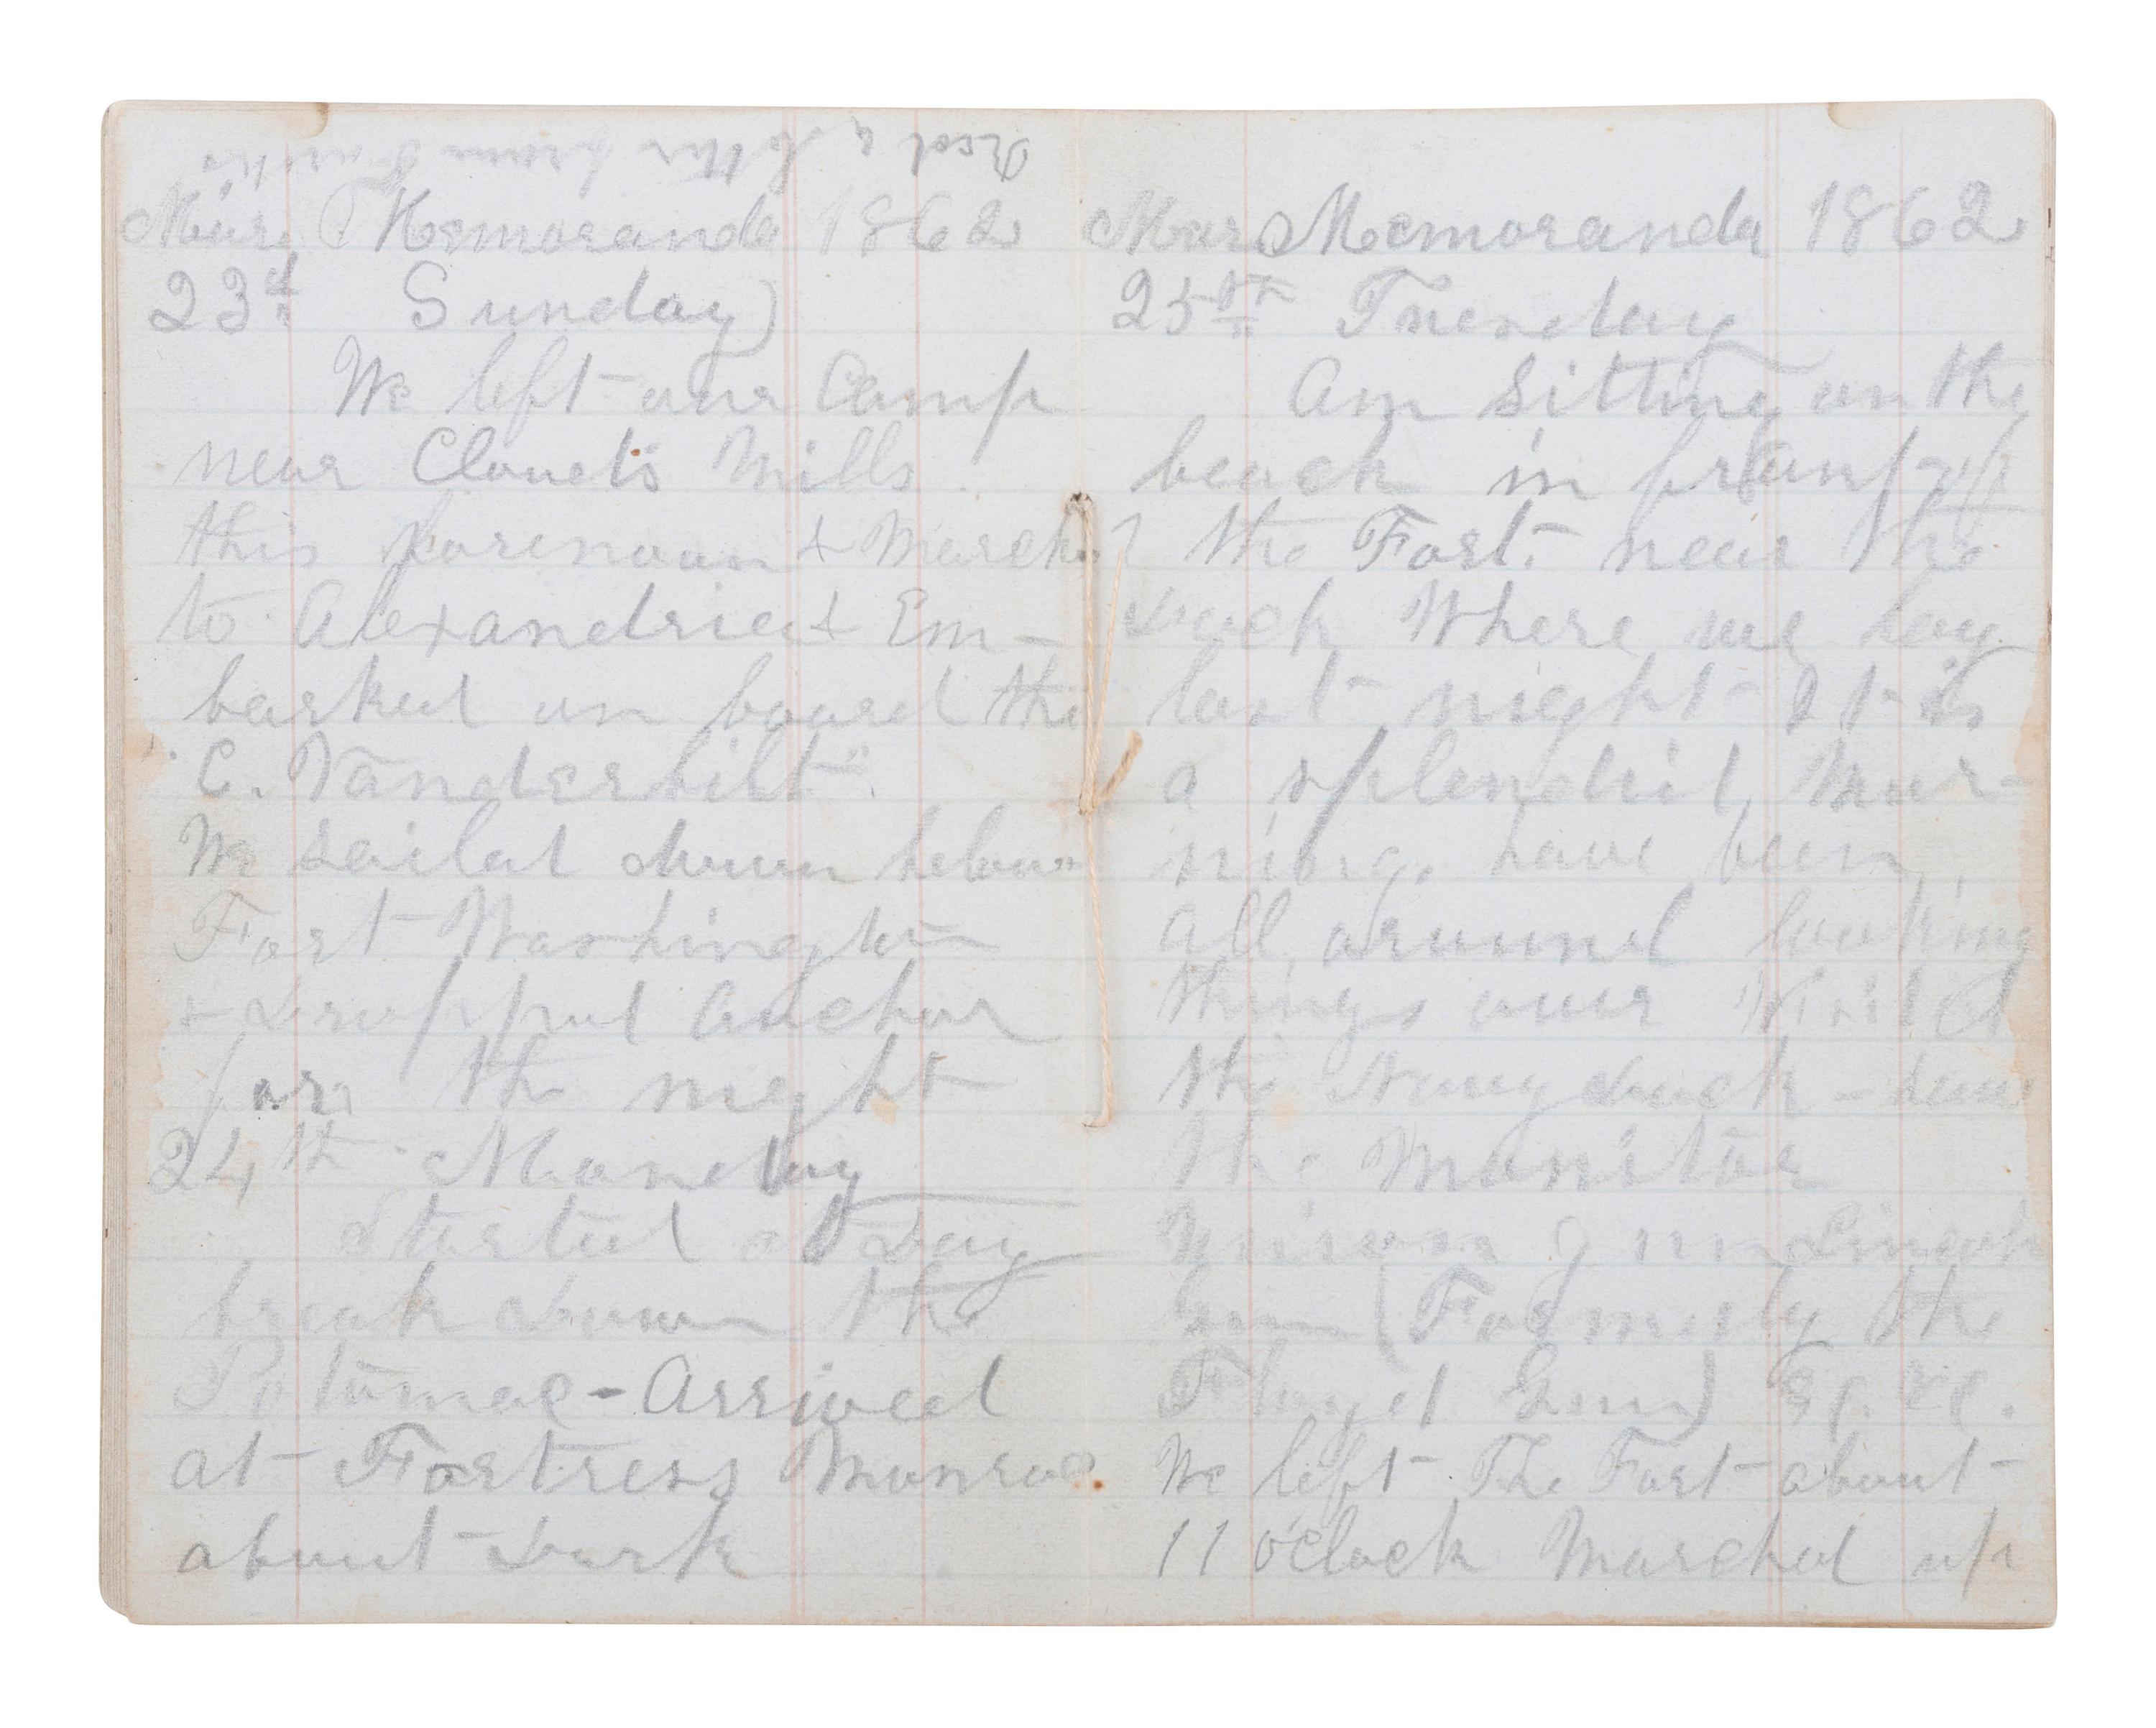 Recd a letter from
Mar Memoranda 1862
23d Sunday
We left our Camp
near Clouds Mills
this forenoon & Marched
to Alexandria & Em-
barked on board the
"C. Vanderbilt"
We sailed down below
Fort Washington
& Dropped Anchor
for the night
24th Monday
Started at Day
break down the
Potomac - Arrived
at Fortress Monroe
about Dark
Mar Memoranda 1862
25th Tuesday
Am Sitting on the
beach in front of
the Fort near the
Dock Where we lay
last night It is
a splendid Mor-
ning. have been
all around looking
things over Visited
the Navy dock - saw
the Monitor
Union gun Lincoln
Gun (Formerly the
Floyd Gun) &c. &c.
We left The Fort about
11 o'clock Marched up